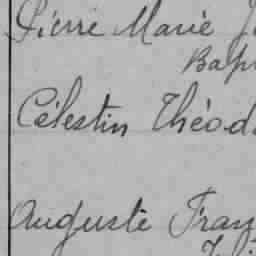 Pierre Marie J
Bap
Célestin Théod
Auguste Fran